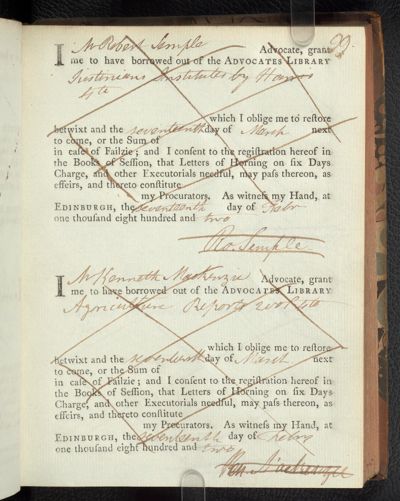 29.
I Mr Robert Semple Advocate, grant
me to have borrowed out of the ADVOCATES LIBRARY
Justinians Institutes by Harris
4to
which I oblige me to restore
betwixt and the seventeenth day of March next
to come, or the Sum of
in case of Failzie; and I consent to the registration hereof in
the Books of Session, that Letters of Horning on six Days
Charge, and other Executorials needful, may pass thereon, as
effeirs, and thereto constitute
my Procurators. As witness my Hand, at
EDINBURGH, the seventeenth day of Febr
one thousand eight hundred and two
Ro. Semple
I Mr Kenneth Mackenzie Advocate, grant
me to have borrowed out of the ADVOCATES LIBRARY
Agriculture Reports 2 vol 4to
which I oblige me to restore
betwixt and the seventeenth day of March next
to come, or the Sum of
in case of Failzie; and I consent to the registration hereof in
the Books of Session, that Letters of Horning on six Days
Charge, and other Executorials needful, may pass thereon, as
effeirs, and thereto constitute
my Procurators. As witness my Hand, at
EDINBURGH, the seventeenth day of Febry
one thousand eight hundred and two
Mackenzie